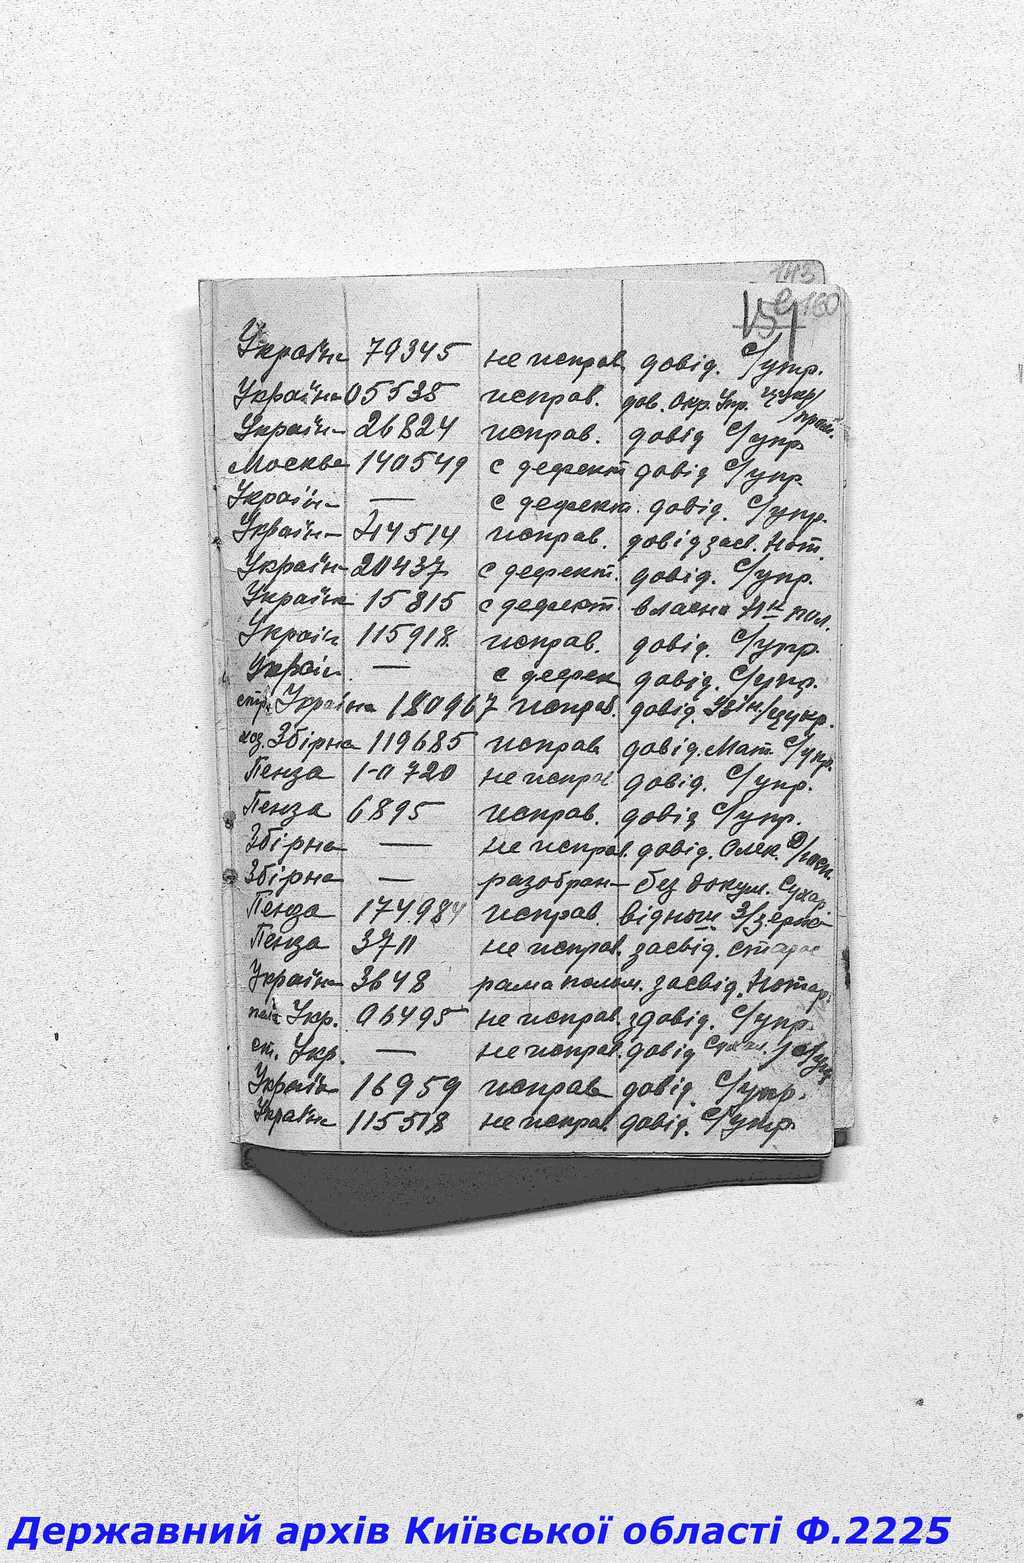 143
160
Україна 79345 не исправ. довід. С/упр.
Україна 05535 исправ. дов. Окр. Упр. цукр/
Україн- 26824 исправ. довід С/упр.
Москва 140549 с дефект довід С/упр.
Україн- — с дефект. довід. С/упр.
Україн- 44514 исправ. довід засв. Нот.
Україн- 20437 с дефект. довід. С/упр.
Україна 15815 с дефект. власна пол.
Україн 115918 исправ. довід. С/упр.
Україн. — с дефек довід. С/упр.
Україна 180967 исправ. довід. /цукр.
Збірна 119685 исправ довід. Мат. С/упр.
Пенза 1-0720 не исправ довід. С/упр.
Пенза 6895 исправ. довід С/упр.
Збірна — не исправ. довід. Олек.
Збірна — разобран- без докум.
Пенза 174984 исправ.
Пенза 3711 не исправ. засвід.
Україна 3648 рама полом. засвід. Нотар.
Укр. 06495 не исправ. довід. С/упр.
ст. Укр. — не исправ. довід
Україн- 16959 исправ довід. С/упр.
Україна 115518 не исправ. довід. С/упр.
Державний архів Київської області Ф.2225